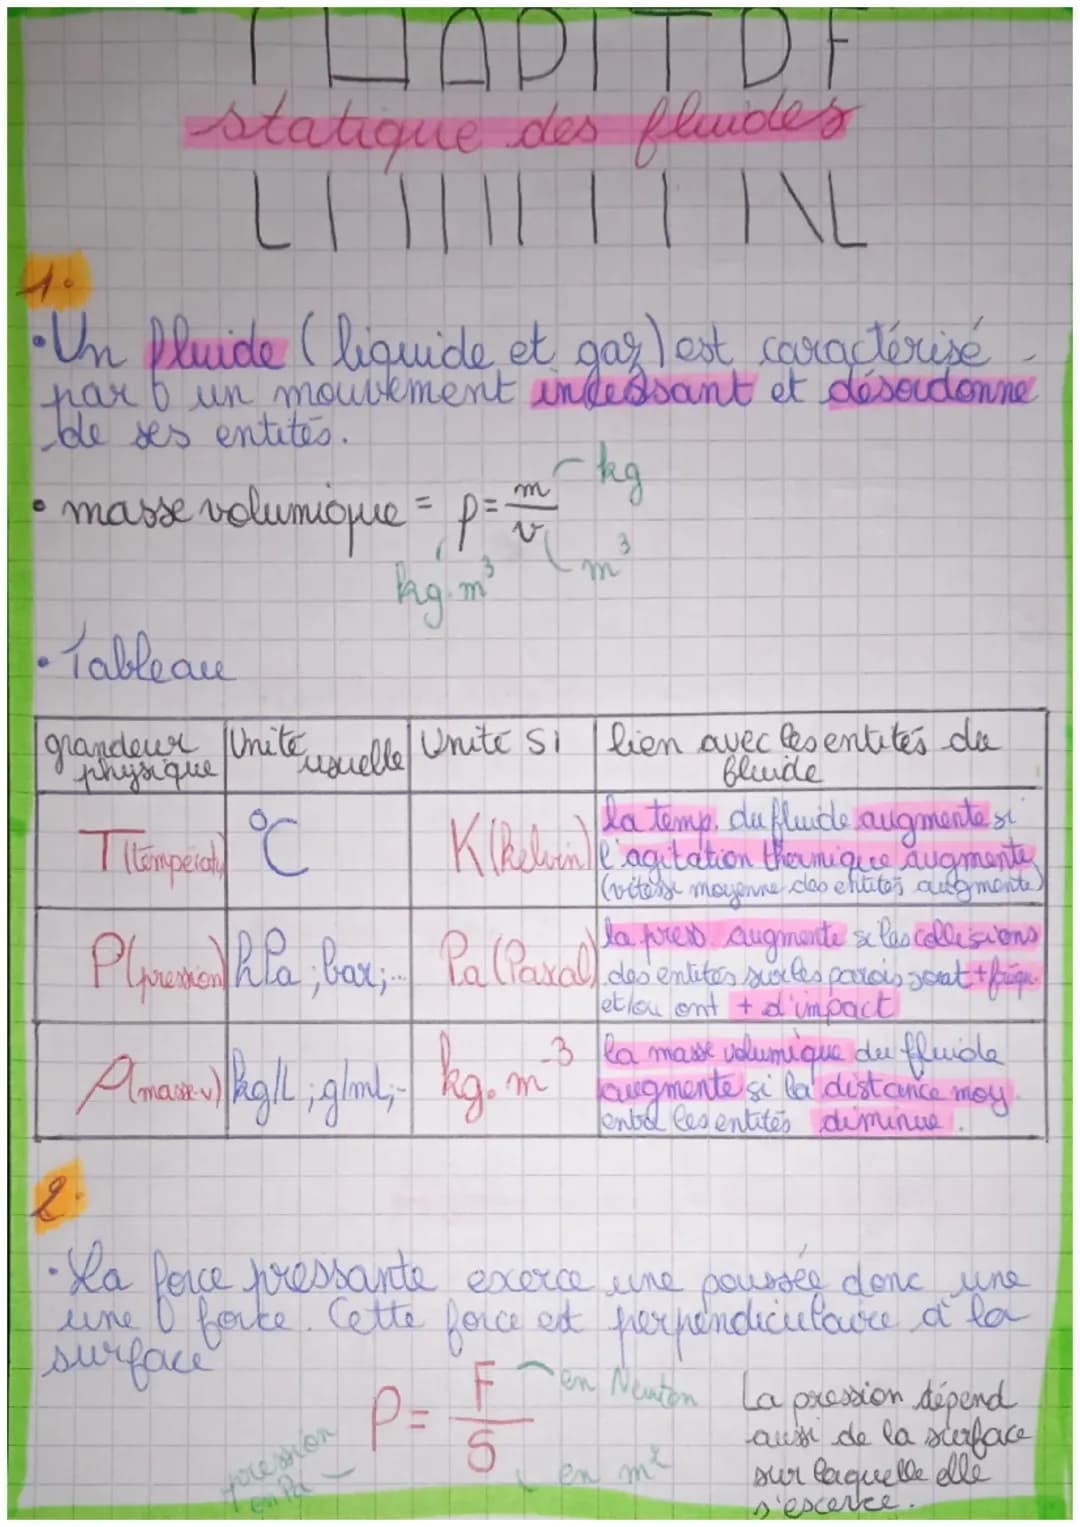 CHAPITRE
statique des fluides
1.
• Un fluide (liquide et gaz) est caractérisé
par un mouvement incessant et désordonné
de ses entités.
• masse volumique = ρ = m/v
kg
m³
kg.m³
• Tableau
grandeur physique | Unité usuelle | Unité SI | lien avec les entités du fluide
T (températ) | °C | K (Kelvin) | la temp. du fluide augmente si
l'agitation thermique augmente
(vitesse moyenne des entités augmente)
P (pression) | hPa ; bar ; ... | Pa (Pascal) | la press. augmente si les collisions
des entités sur les parois sont + fréqu.
et/ou ont + d'impact
ρ (masse v) | kg/L ; g/mL ; - | kg.m⁻³ | la masse volumique du fluide
augmente si la distance moy
entre les entités diminue.
2.
• La force pressante exerce une poussée donc une
une force. Cette force est perpendiculaire à la
surface
P = F/S
en Newton
en m²
pression
en Pa
La pression dépend
aussi de la surface
sur laquelle elle
s'exerce.